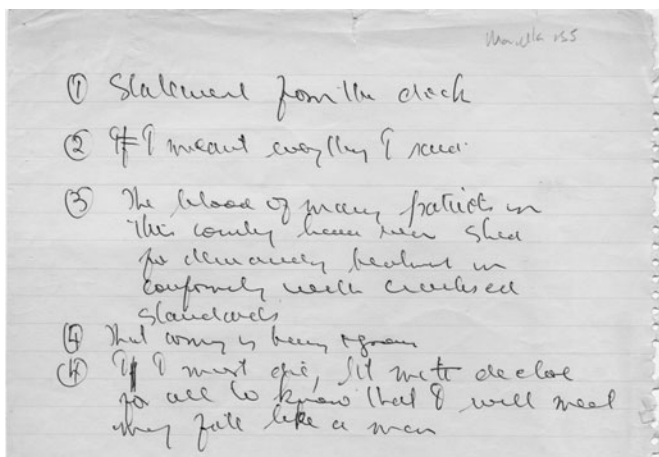 ① Statement from the dock
② If I meant everything I said.
③ The blood of many patriots in
this country have been shed
for demanding treatment in
conformity with civilised
standards
④ That army is being
④ If I must die, let me declare
for all to know that I will meet
my fate like a man